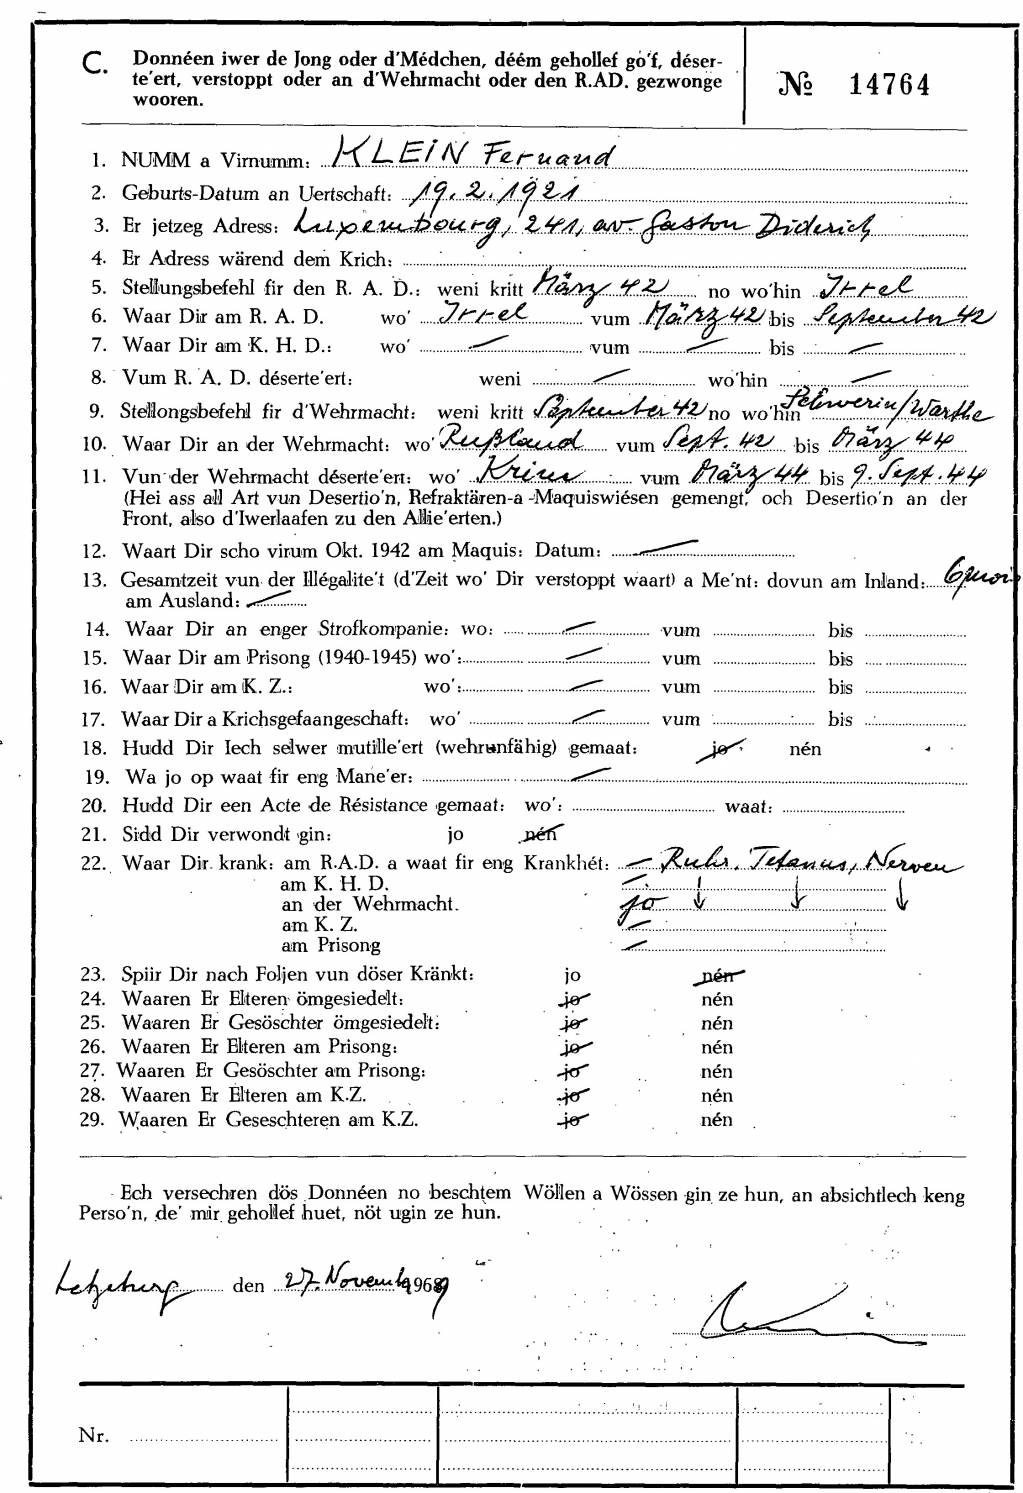 C. Donnéen iwer de Jong oder d'Médchen, déém gehollef go'f, déser-
te'ert, verstoppt oder an d'Wehrmacht oder den R.AD. gezwonge
wooren.
№ 14764
1. NUMM a Virnumm: KLEIN Fernand
2. Geburts-Datum an Uertschaft: 19.2.1921
3. Er jetzeg Adress: Luxembourg, 241, av. Gaston Diderich
4. Er Adress wärend dem Krich:
5. Stellungsbefehl fir den R. A. D.: weni kritt März 42 no wo'hin Irrel
6. Waar Dir am R. A. D. wo' Irrel vum März 42 bis September 42
7. Waar Dir am K. H. D.: wo' — vum — bis —
8. Vum R. A. D. déserte'ert: weni — wo'hin —
9. Stellongsbefehl fir d'Wehrmacht: weni kritt September 42 no wo'hin Schwerin/Warthe
10. Waar Dir an der Wehrmacht: wo' Rußland vum Sept. 42 bis März 44
11. Vun der Wehrmacht déserte'ert: wo' vum März 44 bis 9. Sept. 44
(Hei ass all Art vun Desertio'n, Refraktären-a -Maquiswiésen gemengt, och Desertio'n an der
Front, also d'Iwerlaafen zu den Allie'erten.)
12. Waart Dir scho virum Okt. 1942 am Maquis: Datum: —
13. Gesamtzeit vun der Illégalite't (d'Zeit wo' Dir verstoppt waart) a Me'nt: dovun am Inland: 6 mois
am Ausland: —
14. Waar Dir an enger Strofkompanie: wo: — vum bis
15. Waar Dir am Prisong (1940-1945) wo': — vum bis
16. Waar Dir am K. Z.: wo': — vum bis
17. Waar Dir a Krichsgefaangeschaft: wo' — vum bis
18. Hudd Dir Iech selwer mutille'ert (wehrunfähig) gemaat: jo nén
19. Wa jo op waat fir eng Mane'er: —
20. Hudd Dir een Acte de Résistance gemaat: wo': waat:
21. Sidd Dir verwondt gin: jo nén
22. Waar Dir krank: am R.A.D. a waat fir eng Krankhét: — Ruhr, Tetanus, Nerven
am K. H. D. —
an der Wehrmacht. jo ↓ ↓ ↓
am K. Z. —
am Prisong —
23. Spiir Dir nach Foljen vun döser Kränkt: jo nén
24. Waaren Er Elteren ömgesiedelt: jo nén
25. Waaren Er Gesöschter ömgesiedelt: jo nén
26. Waaren Er Elteren am Prisong: jo nén
27. Waaren Er Gesöschter am Prisong: jo nén
28. Waaren Er Elteren am K.Z. jo nén
29. Waaren Er Geseschteren am K.Z. jo nén
Ech versechren dös Donnéen no beschtem Wöllen a Wössen gin ze hun, an absichtlech keng
Perso'n, de' mir gehollef huet, nöt ugin ze hun.
Letzeburg den 27. Novemb 1969
Nr.